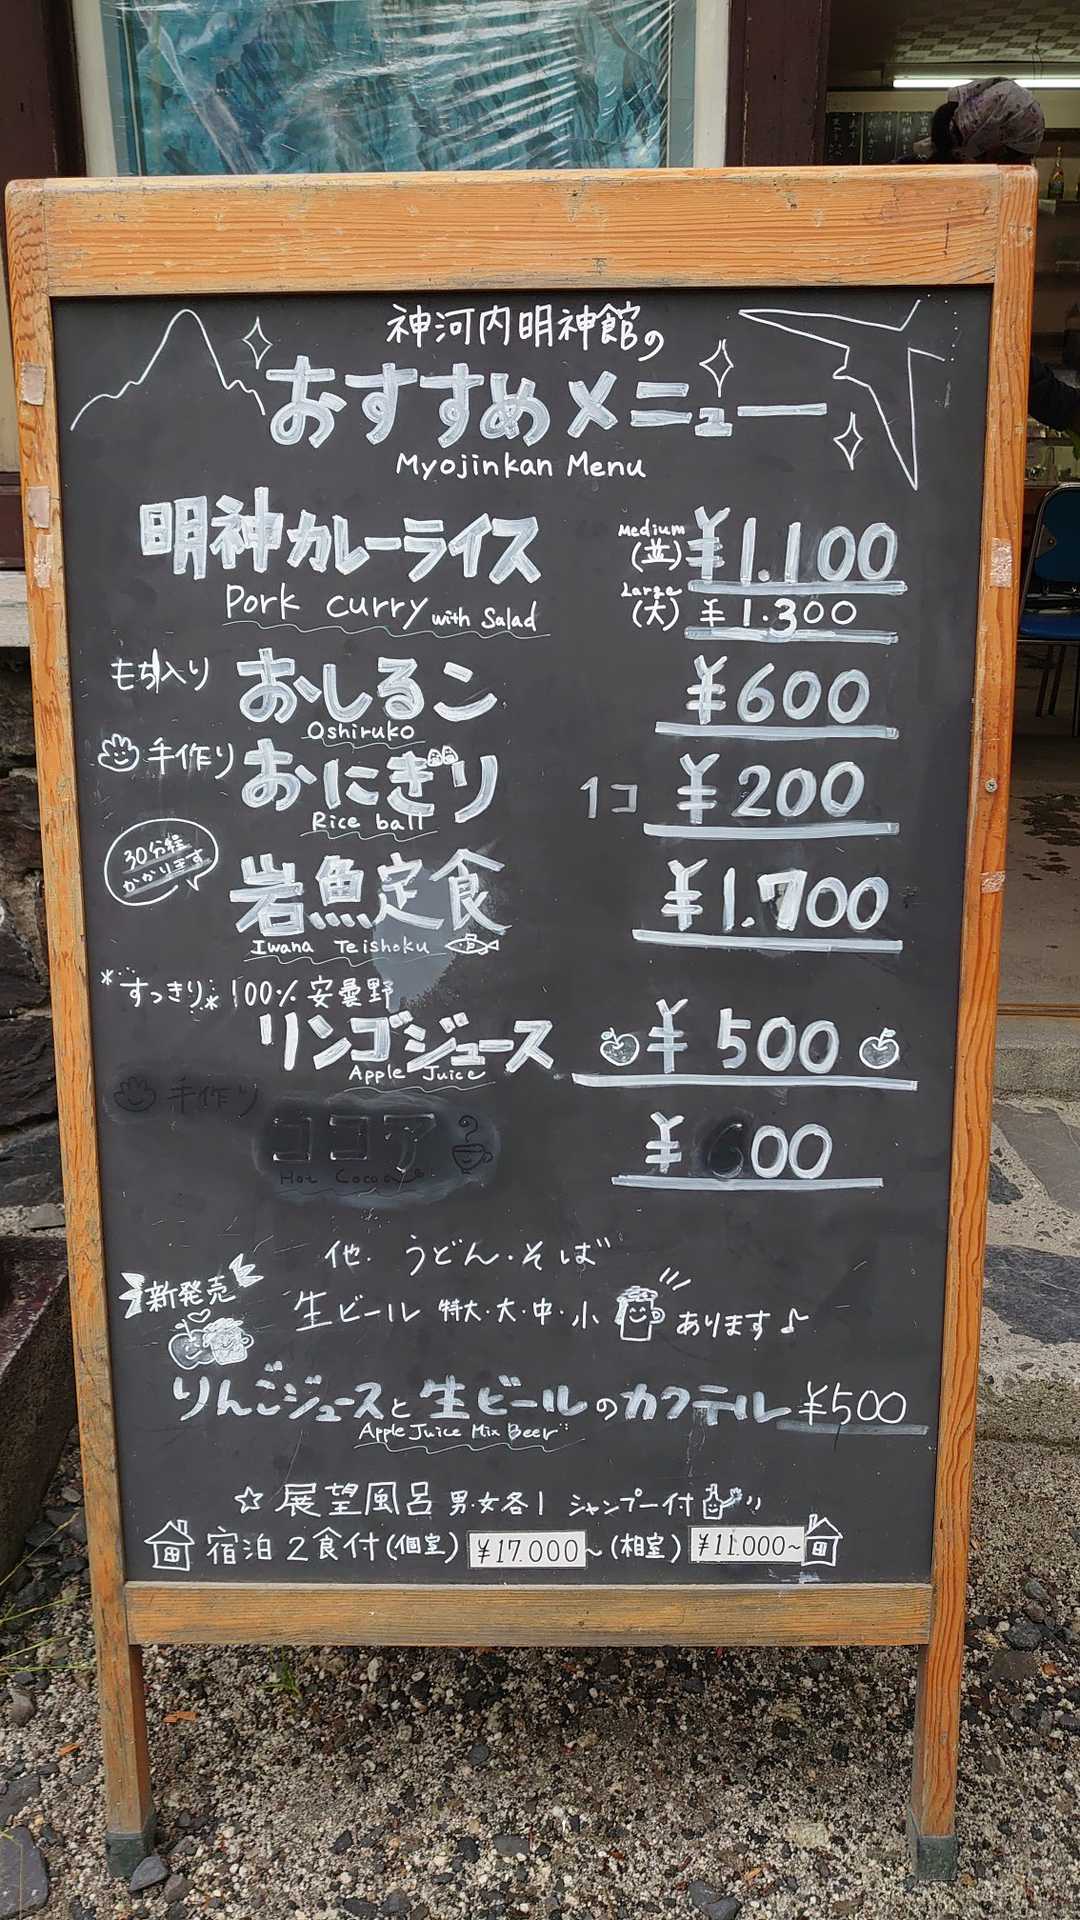 神河内明神館の
おすすめメニュー
Myojinkan Menu
明神カレーライス Medium (並) ¥1.100
Pork curry with Salad Large (大) ¥1.300
もち入り おしるこ ¥600
Oshiruko
手作り おにぎり 1コ ¥200
Rice ball
30分程かかります 岩魚定食 ¥1.700
Iwana Teishoku
*すっきり* 100% 安曇野
リンゴジュース ¥500
Apple Juice
手作り ココア ¥600
Hot Cocoa
他. うどん・そば
新発売 生ビール 特大・大・中・小 あります♪
りんごジュースと生ビールのカクテル ¥500
Apple Juice Mix Beer
☆ 展望風呂 男・女各1 シャンプー付
宿泊2食付(個室) ¥17.000~ (相室) ¥11.000~